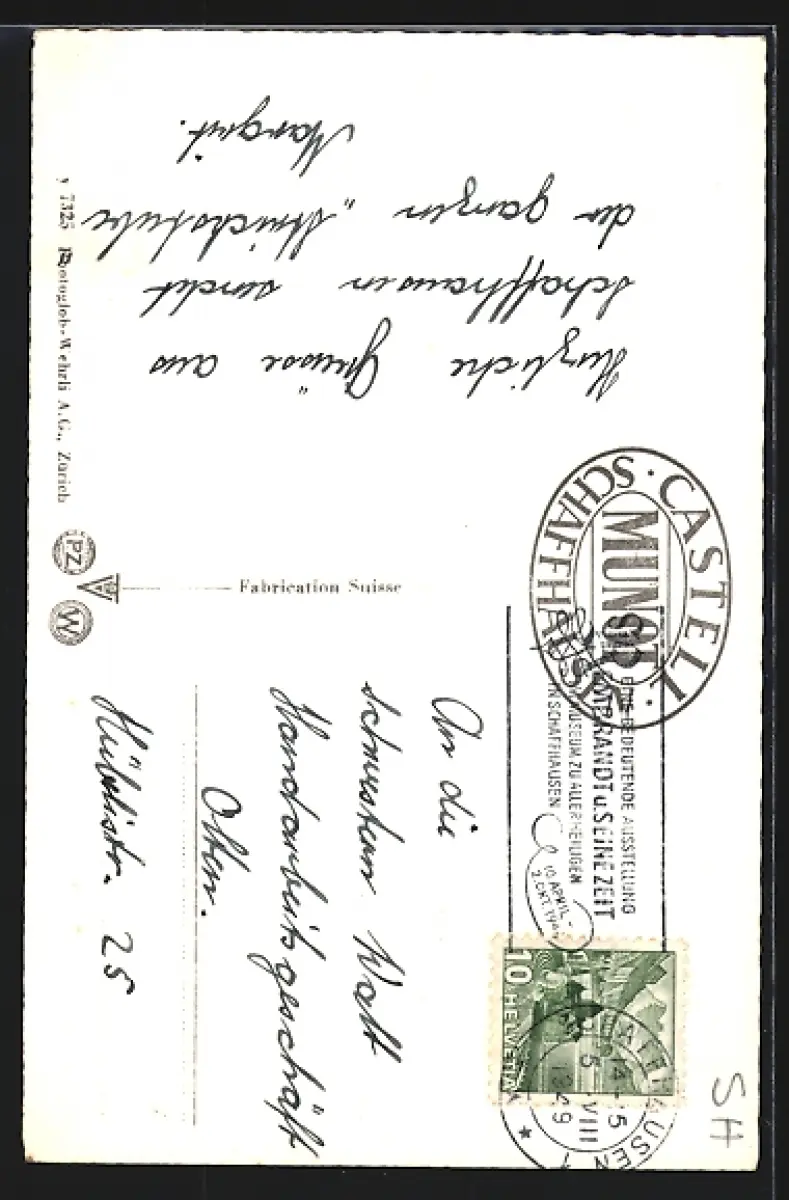 Herzliche Grüsse aus
Schaffhausen sendet
der ganzen „Strickstube
Margrit.
y 7325 Photoglob-Wehrli A.G., Zürich
PZ
W
Fabrication Suisse
CASTELL · SCHAFFHAUSEN ·
MUNOT
EINE BEDEUTENDE AUSSTELLUNG
REMBRANDT u. SEINE ZEIT
MUSEUM ZU ALLERHEILIGEN
IN SCHAFFHAUSEN
10. APRIL -
2. OKT. 1949
10 HELVETIA
SCHAFFHAUSEN 1
14-15
5. VIII
1949
An die
Schwestern Walt
Handarbeitsgeschäft
Olten.
Hübelistr. 25
SH